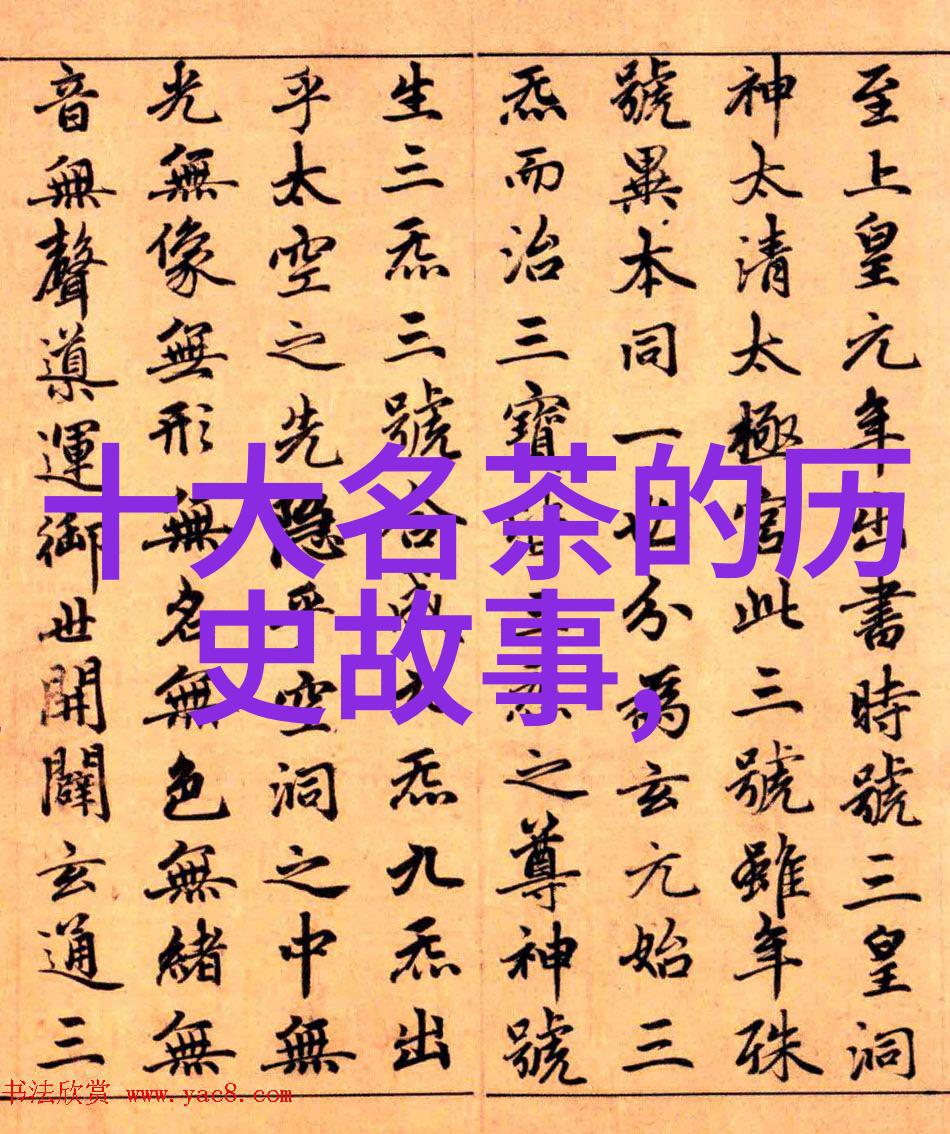 至上皇元年出書時號三皇洞
神太清太極宮此三號雖年殊
號異本同一也分爲玄元始三
炁而治三寶皆三炁之尊神號
生三炁三號合成九炁九炁出
乎太空之先隱乎空洞之中無
光無像無形無名無色無緒無
音無聲導運御世開闢玄通三
十大名茶的历
史故事,
书法欣赏 www.yac8.com